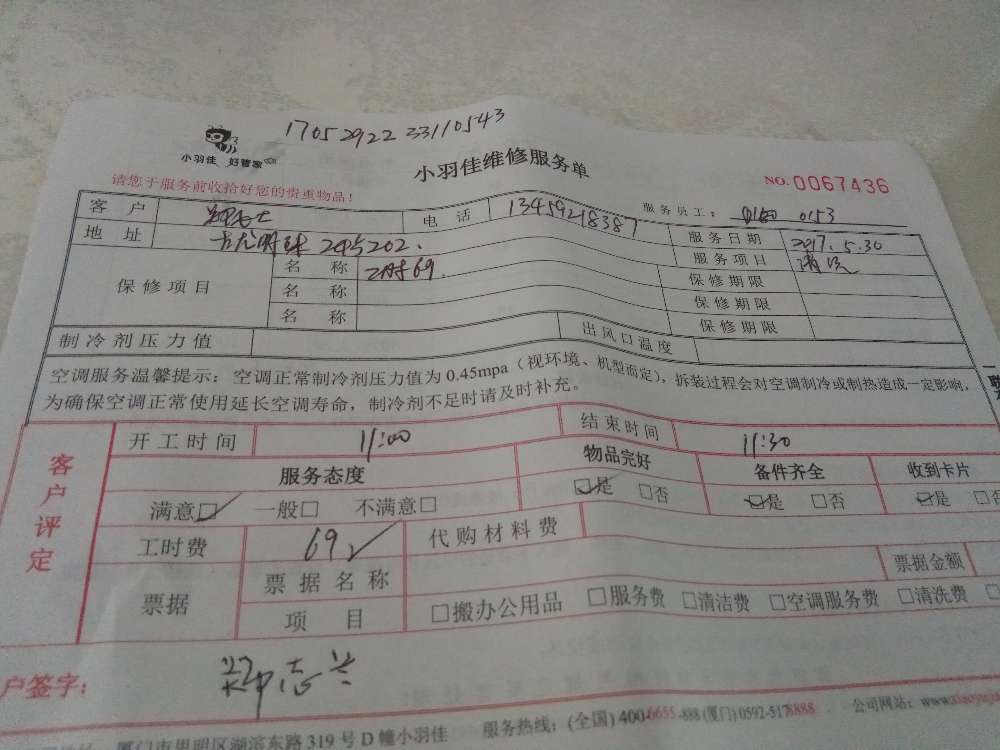 17052922 33110543
小羽佳 好管家
小羽佳维修服务单
NO. 0067436
请您于服务前收拾好您的贵重物品!
客 户 电 话 13459218387 服务员工: 0153
地 址 245202. 服务日期 2017.5.30
保修项目 名 称 69 服务项目 清洗
名 称 保修期限
名 称 保修期限
保修期限
制冷剂压力值 出风口温度
空调服务温馨提示:空调正常制冷剂压力值为 0.45mpa(视环境、机型而定),拆装过程会对空调制冷或制热造成一定影响,
为确保空调正常使用延长空调寿命,制冷剂不足时请及时补充。
客户评定
开工时间 11:00 结束时间 11:30
服务态度 物品完好 备件齐全 收到卡片
满意□ 一般□ 不满意□ □是 □否 □是 □否 □是 □否
工时费 69 代购材料费
票据 票据名称 票据金额
项 目 □搬办公用品 □服务费 □清洁费 □空调服务费 □清洗费
户签字:
厦门市思明区湖滨东路 319 号 D 幢小羽佳 服务热线:(全国) 400-6655-888 (厦门) 0592-5178888 公司网站: